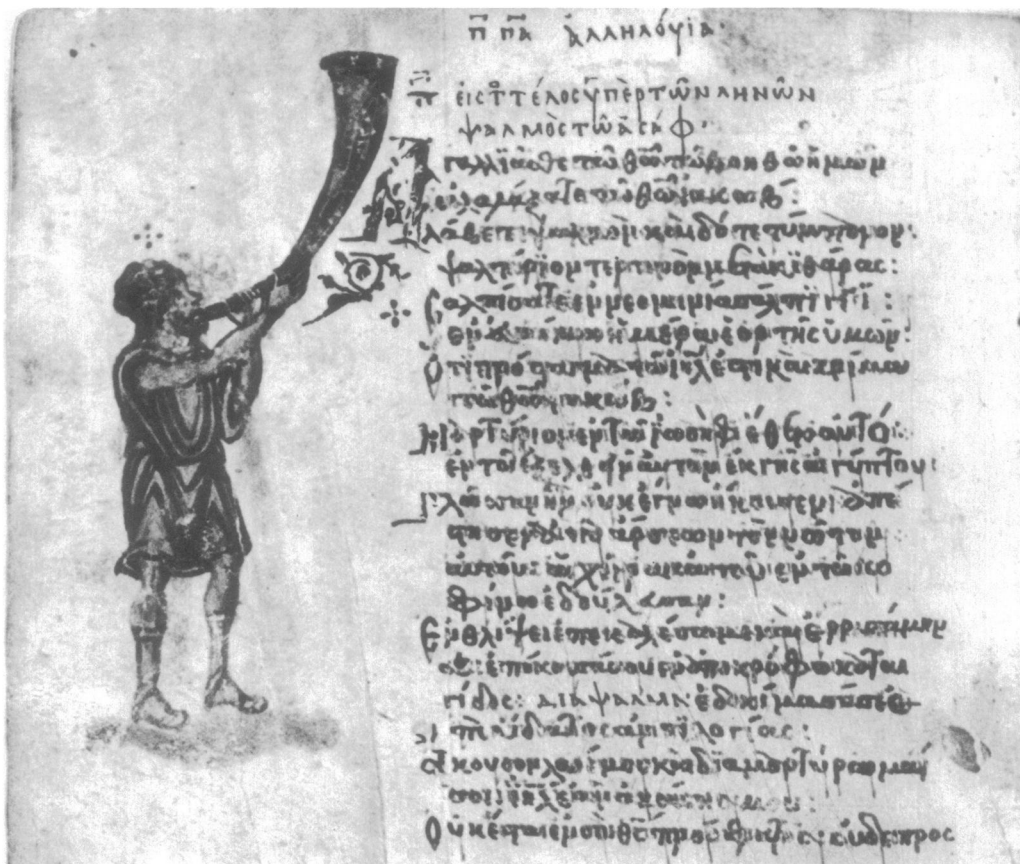 π πα ἀλληλούϊα·
π εις τ τέλος ὑπὲρ τῶν ληνῶν
ψαλμὸς τῶ ἀσάφ·
Ἀγαλλιᾶσθε τῶ θῶ τῶ βοηθῶ ἡμῶν
ἀλαλάξατε τῶ θῶ ἰακώβ:
Λάβετε ψαλμὸν καὶ δότε τύμπανον:
ψαλτήριον τερπνὸν μετὰ κιθάρας:
Σαλπίσατε ἐν νεομηνία σάλπιγγι:
ἡμέρα ἑορτῆς ὑμῶν:
Ὅτι πρόσταγμα τῶ ιηλ ἐστὶ καὶ κρίμα
τῶ θῶ ἰακώβ:
Μαρτύριον ἐν τῶ ἰωσὴφ ἔθετο αὐτό:
ἐν τῶ ἐξελθεῖν αὐτὸν ἐκ γῆς αἰγύπτου:
Γλῶσσαν ἣν οὐκ ἔγνω ἤκουσεν: ἀπέ
στησεν ἀπὸ ἄρσεων τὸν νῶτον
αὐτοῦ: αἱ χεῖρες αὐτοῦ ἐν τῶ κο
φίνω ἐδούλευσαν:
Ἐν θλίψει ἐπεκαλέσω με καὶ ἐρρυσάμην
σε: ἐπήκουσά σου ἐν ἀποκρύφω καται
γίδος: διάψαλμα ἐδοκίμασά σε
ἐπὶ ὕδατος ἀντιλογίας:
Ἄκουσον λαός μου καὶ διαμαρτύρομαί
σοι ιηλ ἐὰν ἀκούσης μου:
Οὐκ ἔσται ἐν σοὶ θς πρόσφατος: οὐδὲ προς